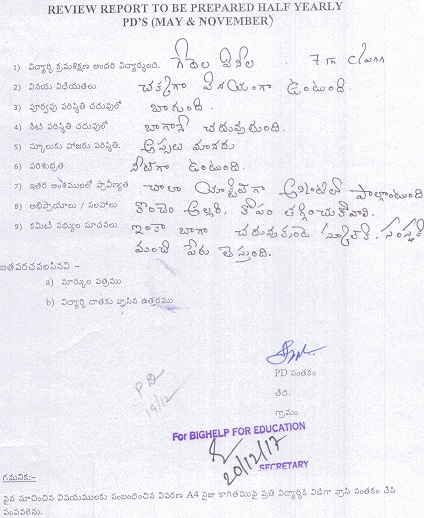 REVIEW REPORT TO BE PREPARED HALF YEARLY
PD'S (MAY & NOVEMBER)
1) విద్యార్థి క్రమశిక్షణ అందరి విద్యార్థులది. గేదెల 7th Class
2) వినయ విధేయతలు చక్కగా వినయంగా ఉంటుంది.
3) పూర్వపు పరిస్థితి చదువులో బాగుంది.
4) నేటి పరిస్థితి చదువులో బాగానే చదువుతుంది.
5) స్కూలుకు హాజరు పరిస్థితి. అస్సలు మానదు
6) పరిశుభ్రత నీట్‌గా ఉంటుంది.
7) ఇతర అంశములలో ప్రావీణ్యత చాలా యాక్టివ్‌గా అన్నింటిలో పాల్గొంటుంది
8) అభిప్రాయాలు / సలహాలు కొంచెం అల్లరి, కోపం తగ్గించుకోవాలి.
9) కమిటీ సభ్యుల సూచనలు ఇంకా బాగా చదువుకుంటె స్కూల్‌కి, సంస్థకి
మంచి పేరు తెస్తుంది.
జతపరచవలసినవి –
a) మార్కుల పత్రము
b) విద్యార్థి దాతకు వ్రాసిన ఉత్తరము
PD సంతకం
తేది.
గ్రామం
PD
19/12
For BIGHELP FOR EDUCATION
20/12/17
SECRETARY
గమనిక:-
పైన సూచించిన విషయములకు సంబంధించిన వివరణ A4 సైజు కాగితముపై ప్రతి విద్యార్థికి విడిగా వ్రాసి సంతకం చేసి
పంపవలెను.